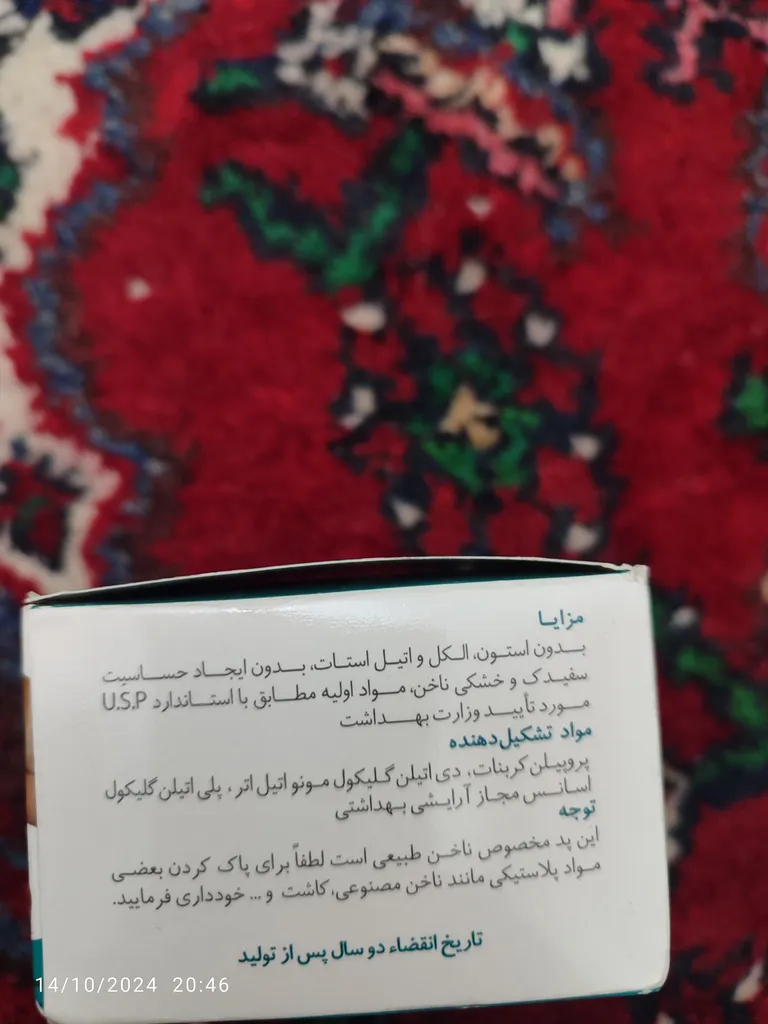 مزایا
بدون استون، الکل و اتیل استات، بدون ایجاد حساسیت
سفیدک و خشکی ناخن، مواد اولیه مطابق با استاندارد U.S.P
مورد تأیید وزارت بهداشت
مواد تشکیل‌دهنده
پروپیلن کربنات، دی اتیلن گلیکول مونو اتیل اتر، پلی اتیلن گلیکول
اسانس مجاز آرایشی بهداشتی
توجه
این پد مخصوص ناخن طبیعی است لطفاً برای پاک کردن بعضی
مواد پلاستیکی مانند ناخن مصنوعی، کاشت و ... خودداری فرمایید.
تاریخ انقضاء دو سال پس از تولید
14/10/2024 20:46